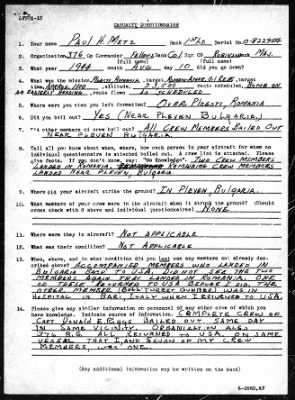 CASUALTY QUESTIONNAIRE
1. Your name PAUL H. METZ Rank 1ST Lt. Serial No.
2. Organization 376 Gp Commander FELLOWS Rank COL Sqn CO Rank MAJ.
(full name) (full name)
3. What year 1944 month AUG day 10 did you go down?
4. What was the mission, PLOESTI, ROMANIA, target, ROMANO-AMER. OIL REF., target
time, altitude, 23,500 route scheduled,
route flown AS SCHEDULED
5. Where were you when you left formation? OVER PLOESTI, ROMANIA
6. Did you bail out? YES (NEAR PLEVEN BULGARIA)
7. Did other members of crew bail out? ALL CREW MEMBERS BAILED OUT
NEAR PLEVEN BULGARIA
8. Tell all you know about when, where, how each person in your aircraft for whom no
individual questionnaire is attached bailed out. A crew list is attached. Please
give facts. If you don't know, say: "No Knowledge". TWO CREW MEMBERS
LANDED IN ROMANIA. REMAINING CREW MEMBERS
LANDED NEAR PLEVEN, BULGARIA
9. Where did your aircraft strike the ground? IN PLEVEN, BULGARIA.
10. What members of your crew were in the aircraft when it struck the ground? (Should
cross check with 8 above and individual questionnaires) NONE
11. Where were they in aircraft? NOT APPLICABLE
12. What was their condition? NOT APPLICABLE
13. When, where, and in what condition did you last see any members not already des-
cribed above? ACCOMPANIED MEMBERS WHO LANDED IN
BULGARIA BACK TO USA. DID NOT SEE THE TWO
MEMBERS AGAIN THAT LANDED IN ROMANIA. ONE
OF THESE RETURNED TO USA BEFORE I DID. THE
OTHER MEMBER (BALL TURRET GUNNER) WAS IN
HOSPITAL IN BARI, ITALY WHEN I RETURNED TO USA.
14. Please give any similar information on personnel of any other crew of which you
have knowledge. Indicate source of information. COMPLETE CREW OF
CAPT DONALD E. BAILED OUT SAME DAY
IN SAME VICINITY. ORGANIZATION ALSO
376 B.G. ALL RETURNED TO USA ON SAME
VESSEL THAT I, AND SEVEN OF MY CREW
MEMBERS, WAS ONE.
(Any additional information may be written on the back)